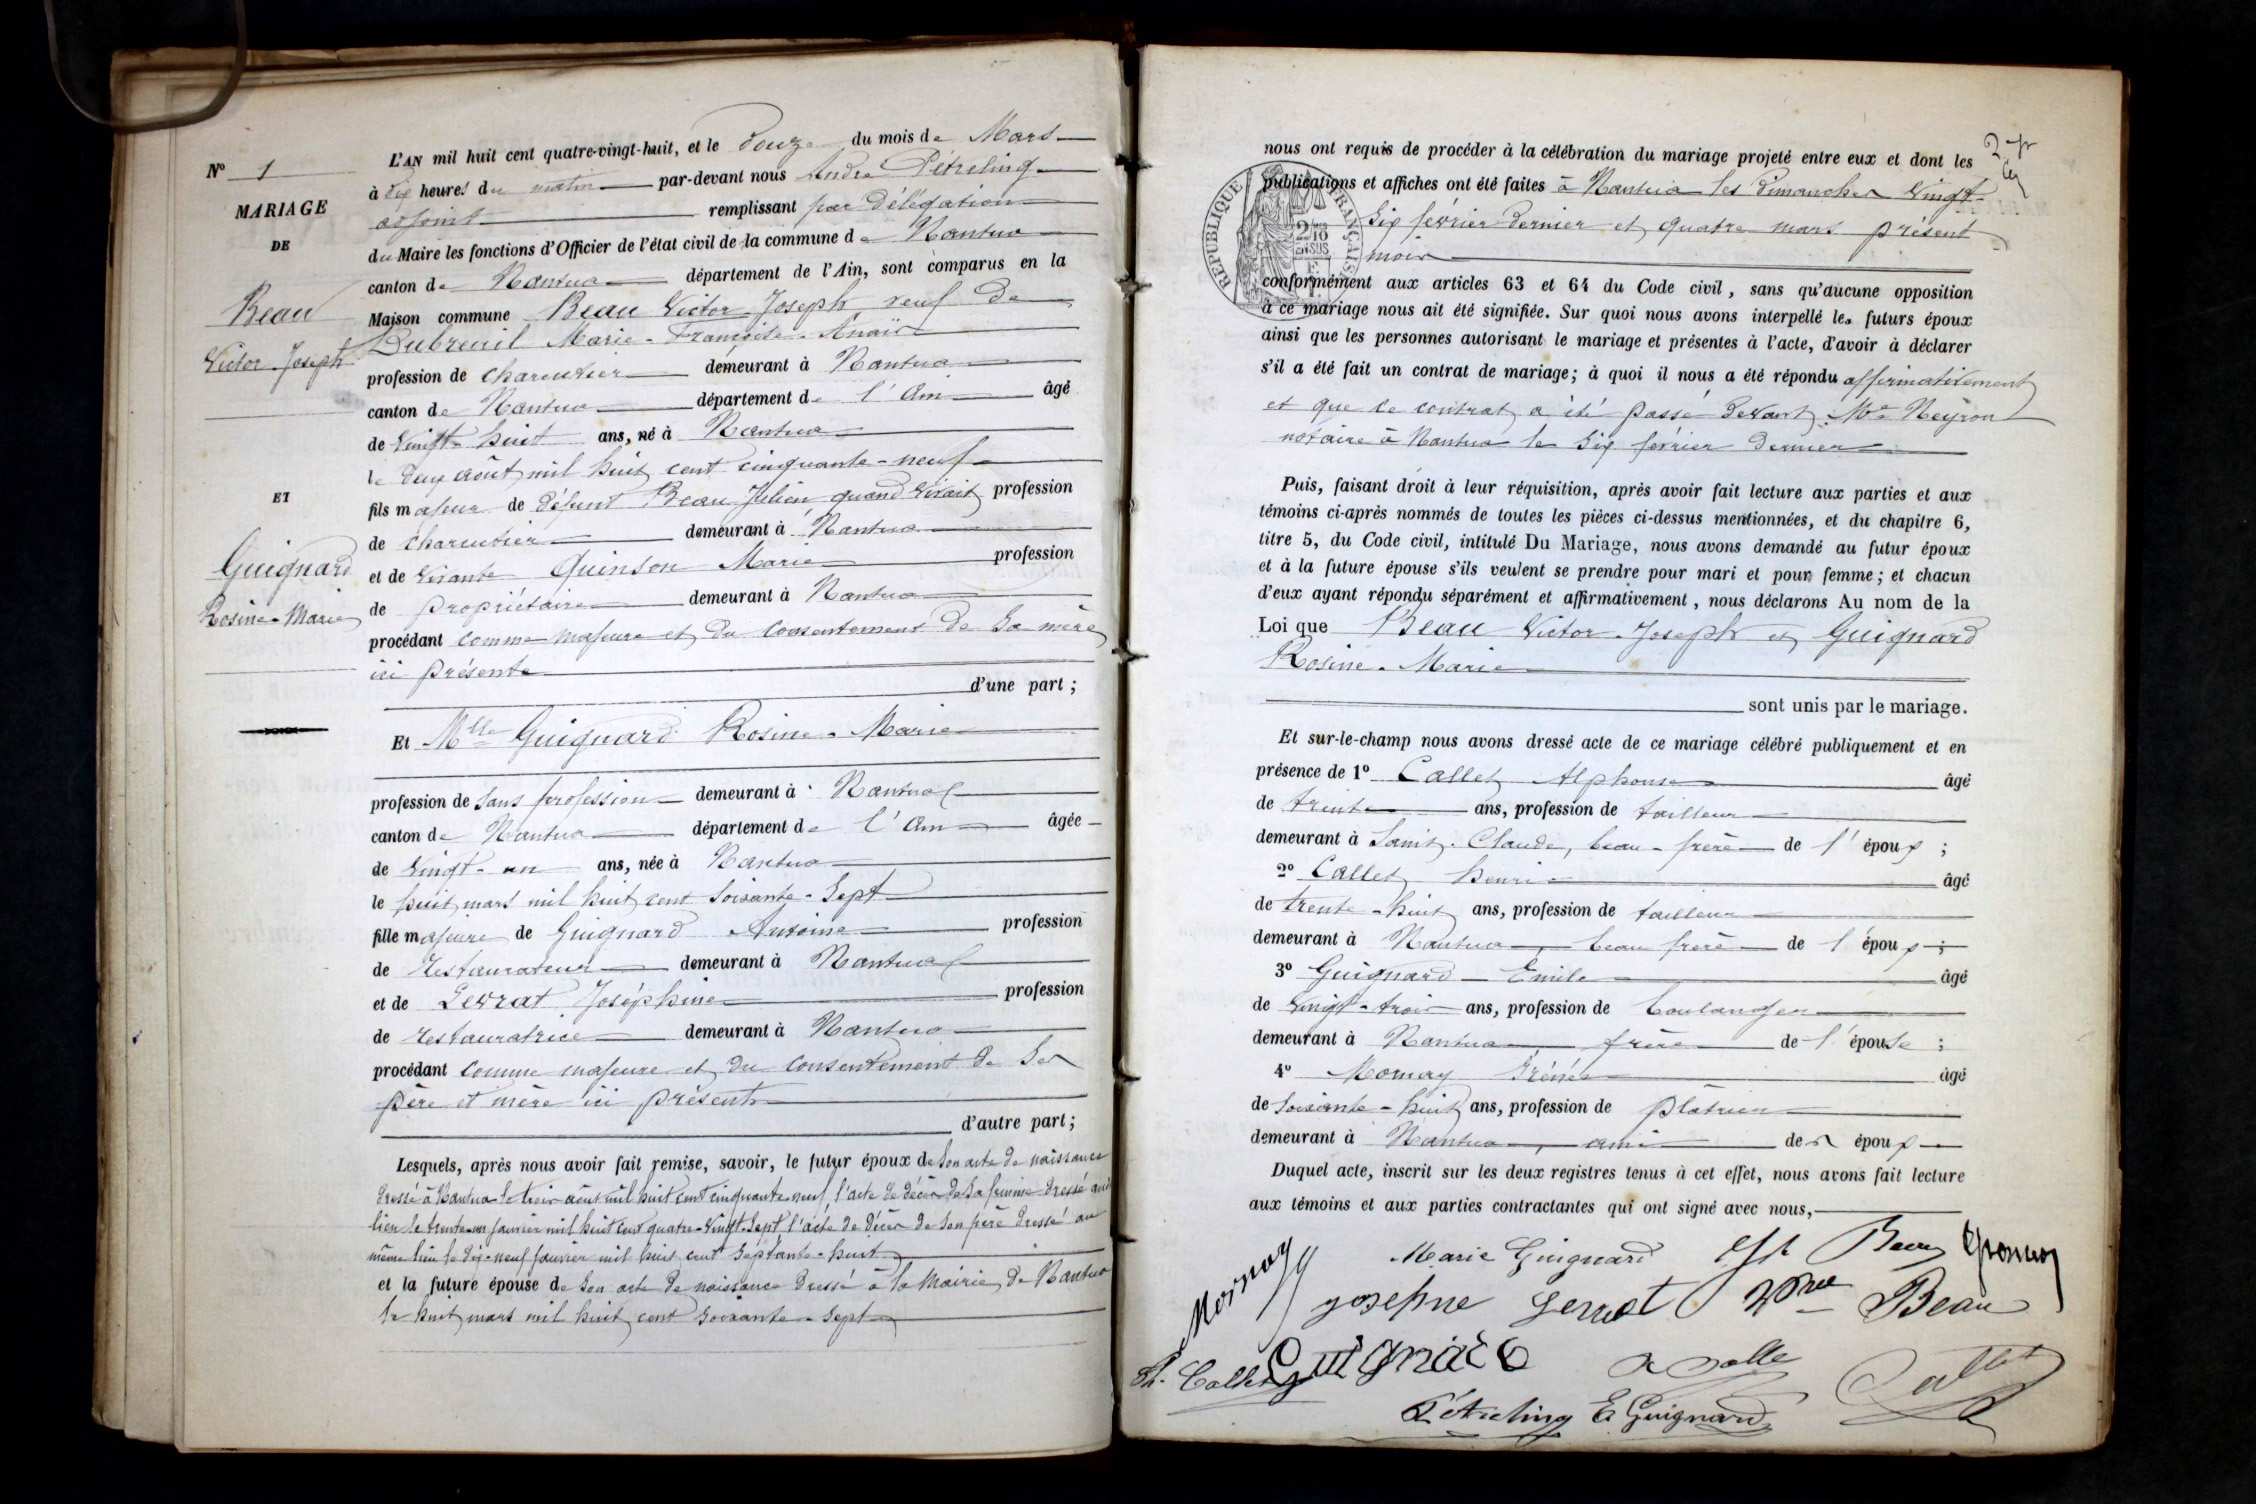 N° 1
MARIAGE
DE
Beau
Victor-Joseph
ET
Guignard
Rosine-Marie
L'AN mil huit cent quatre-vingt-huit, et le Douze du mois de Mars
à dix heures du matin par-devant nous André Pétreling
adjoint remplissant par délégation
du Maire les fonctions d'Officier de l'état civil de la commune de Nantua
canton de Nantua département de l'Ain, sont comparus en la
Maison commune Beau Victor-Joseph veuf de
Dubreuil Marie-Françoise-Anaïs
profession de charcutier demeurant à Nantua
canton de Nantua département de l'Ain âgé
de vingt-huit ans, né à Nantua
le deux août mil huit cent cinquante-neuf
fils majeur de défunt Beau Julien quand vivait profession
de charcutier demeurant à Nantua
et de vivante Quinson Marie profession
de propriétaire demeurant à Nantua
procédant comme majeur et du consentement de sa mère
ici présente
d'une part ;
Et Mlle Guignard Rosine-Marie
profession de sans profession demeurant à Nantua
canton de Nantua département de l'Ain âgée
de vingt-un ans, née à Nantua
le huit mars mil huit cent soixante-sept
fille majeure de Guignard Antoine profession
de restaurateur demeurant à Nantua
et de Levrat Joséphine profession
de restauratrice demeurant à Nantua
procédant comme majeure et du consentement de ses
père et mère ici présents
d'autre part ;
Lesquels, après nous avoir fait remise, savoir, le futur époux de son acte de naissance
dressé à Nantua le trois août mil huit cent cinquante-neuf, l'acte de décès de sa femme dressé audit
lieu le trente-un janvier mil huit cent quatre-vingt-sept l'acte de décès de son père dressé au
même lieu le dix-neuf janvier mil huit cent septante-huit
et la future épouse de son acte de naissance dressé à la Mairie de Nantua
le huit mars mil huit cent soixante-sept
2
nous ont requis de procéder à la célébration du mariage projeté entre eux et dont les
publications et affiches ont été faites à Nantua les dimanches vingt-
six février dernier et quatre mars présent
mois
RÉPUBLIQUE FRANÇAISE
conformément aux articles 63 et 64 du Code civil, sans qu'aucune opposition
à ce mariage nous ait été signifiée. Sur quoi nous avons interpellé les futurs époux
ainsi que les personnes autorisant le mariage et présentes à l'acte, d'avoir à déclarer
s'il a été fait un contrat de mariage ; à quoi il nous a été répondu affirmativement
et que le contrat a été passé devant Me Neyron
notaire à Nantua le six février dernier
Puis, faisant droit à leur réquisition, après avoir fait lecture aux parties et aux
témoins ci-après nommés de toutes les pièces ci-dessus mentionnées, et du chapitre 6,
titre 5, du Code civil, intitulé Du Mariage, nous avons demandé au futur époux
et à la future épouse s'ils veulent se prendre pour mari et pour femme ; et chacun
d'eux ayant répondu séparément et affirmativement, nous déclarons Au nom de la
Loi que Beau Victor-Joseph et Guignard
Rosine-Marie
sont unis par le mariage.
Et sur-le-champ nous avons dressé acte de ce mariage célébré publiquement et en
présence de 1° Callet Alphonse âgé
de trente ans, profession de tailleur
demeurant à Saint-Claude, beau-frère de l'époux ;
2° Callet henri âgé
de trente-huit ans, profession de tailleur
demeurant à Nantua, beau frère de l'époux ;
3° Guignard Emile âgé
de vingt-trois ans, profession de boulanger
demeurant à Nantua frère de l'épouse ;
4° Mornay Irénée âgé
de soixante-huit ans, profession de plâtrier
demeurant à Nantua, ami des époux
Duquel acte, inscrit sur les deux registres tenus à cet effet, nous avons fait lecture
aux témoins et aux parties contractantes qui ont signé avec nous,
Marie Guignard Beau
Mornay josephine Levrat Vve Beau
h. Callet Guignard
Pétreling E Guignard Callet